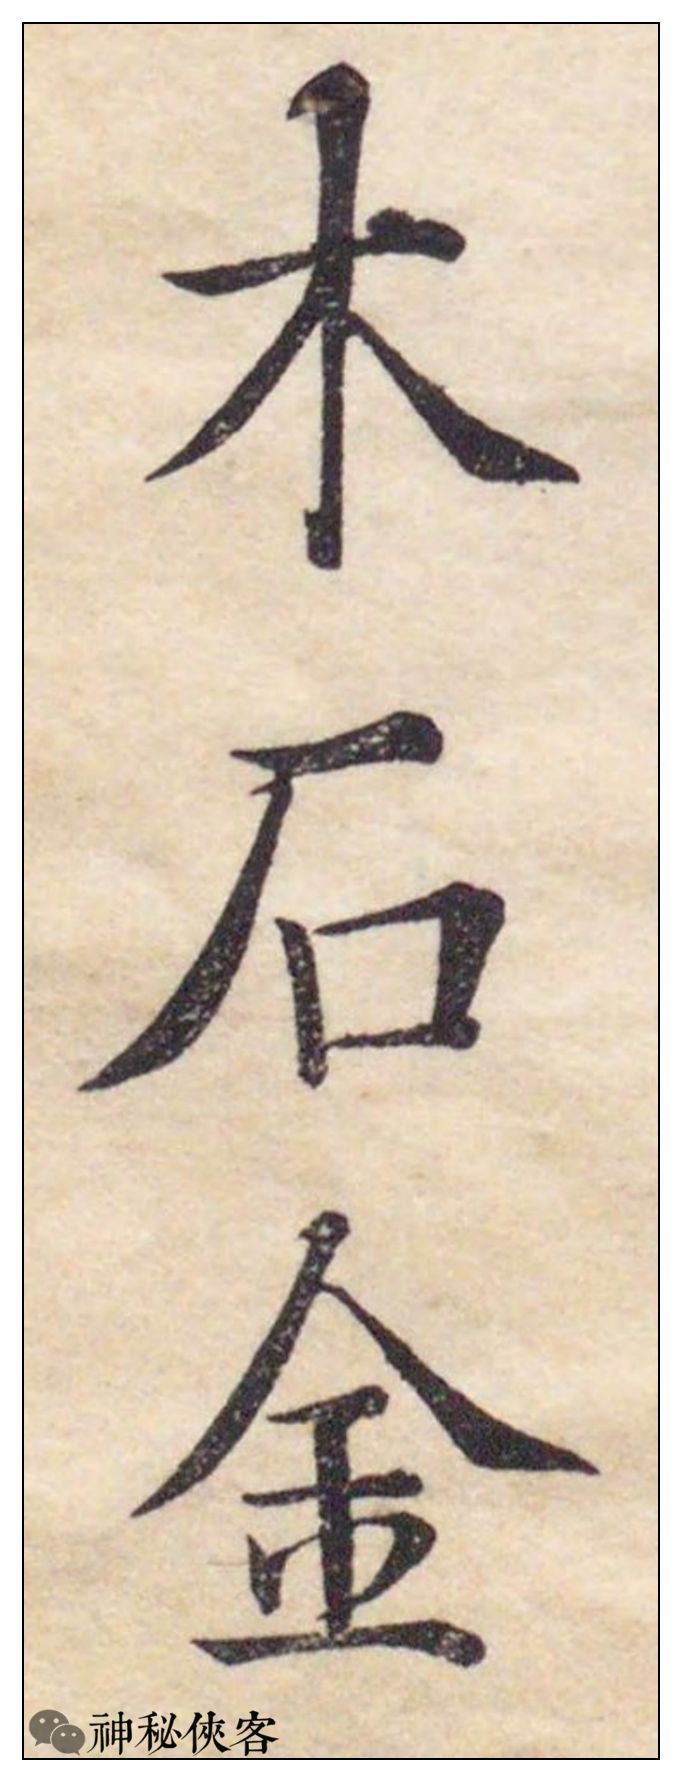 木石金
神秘俠客